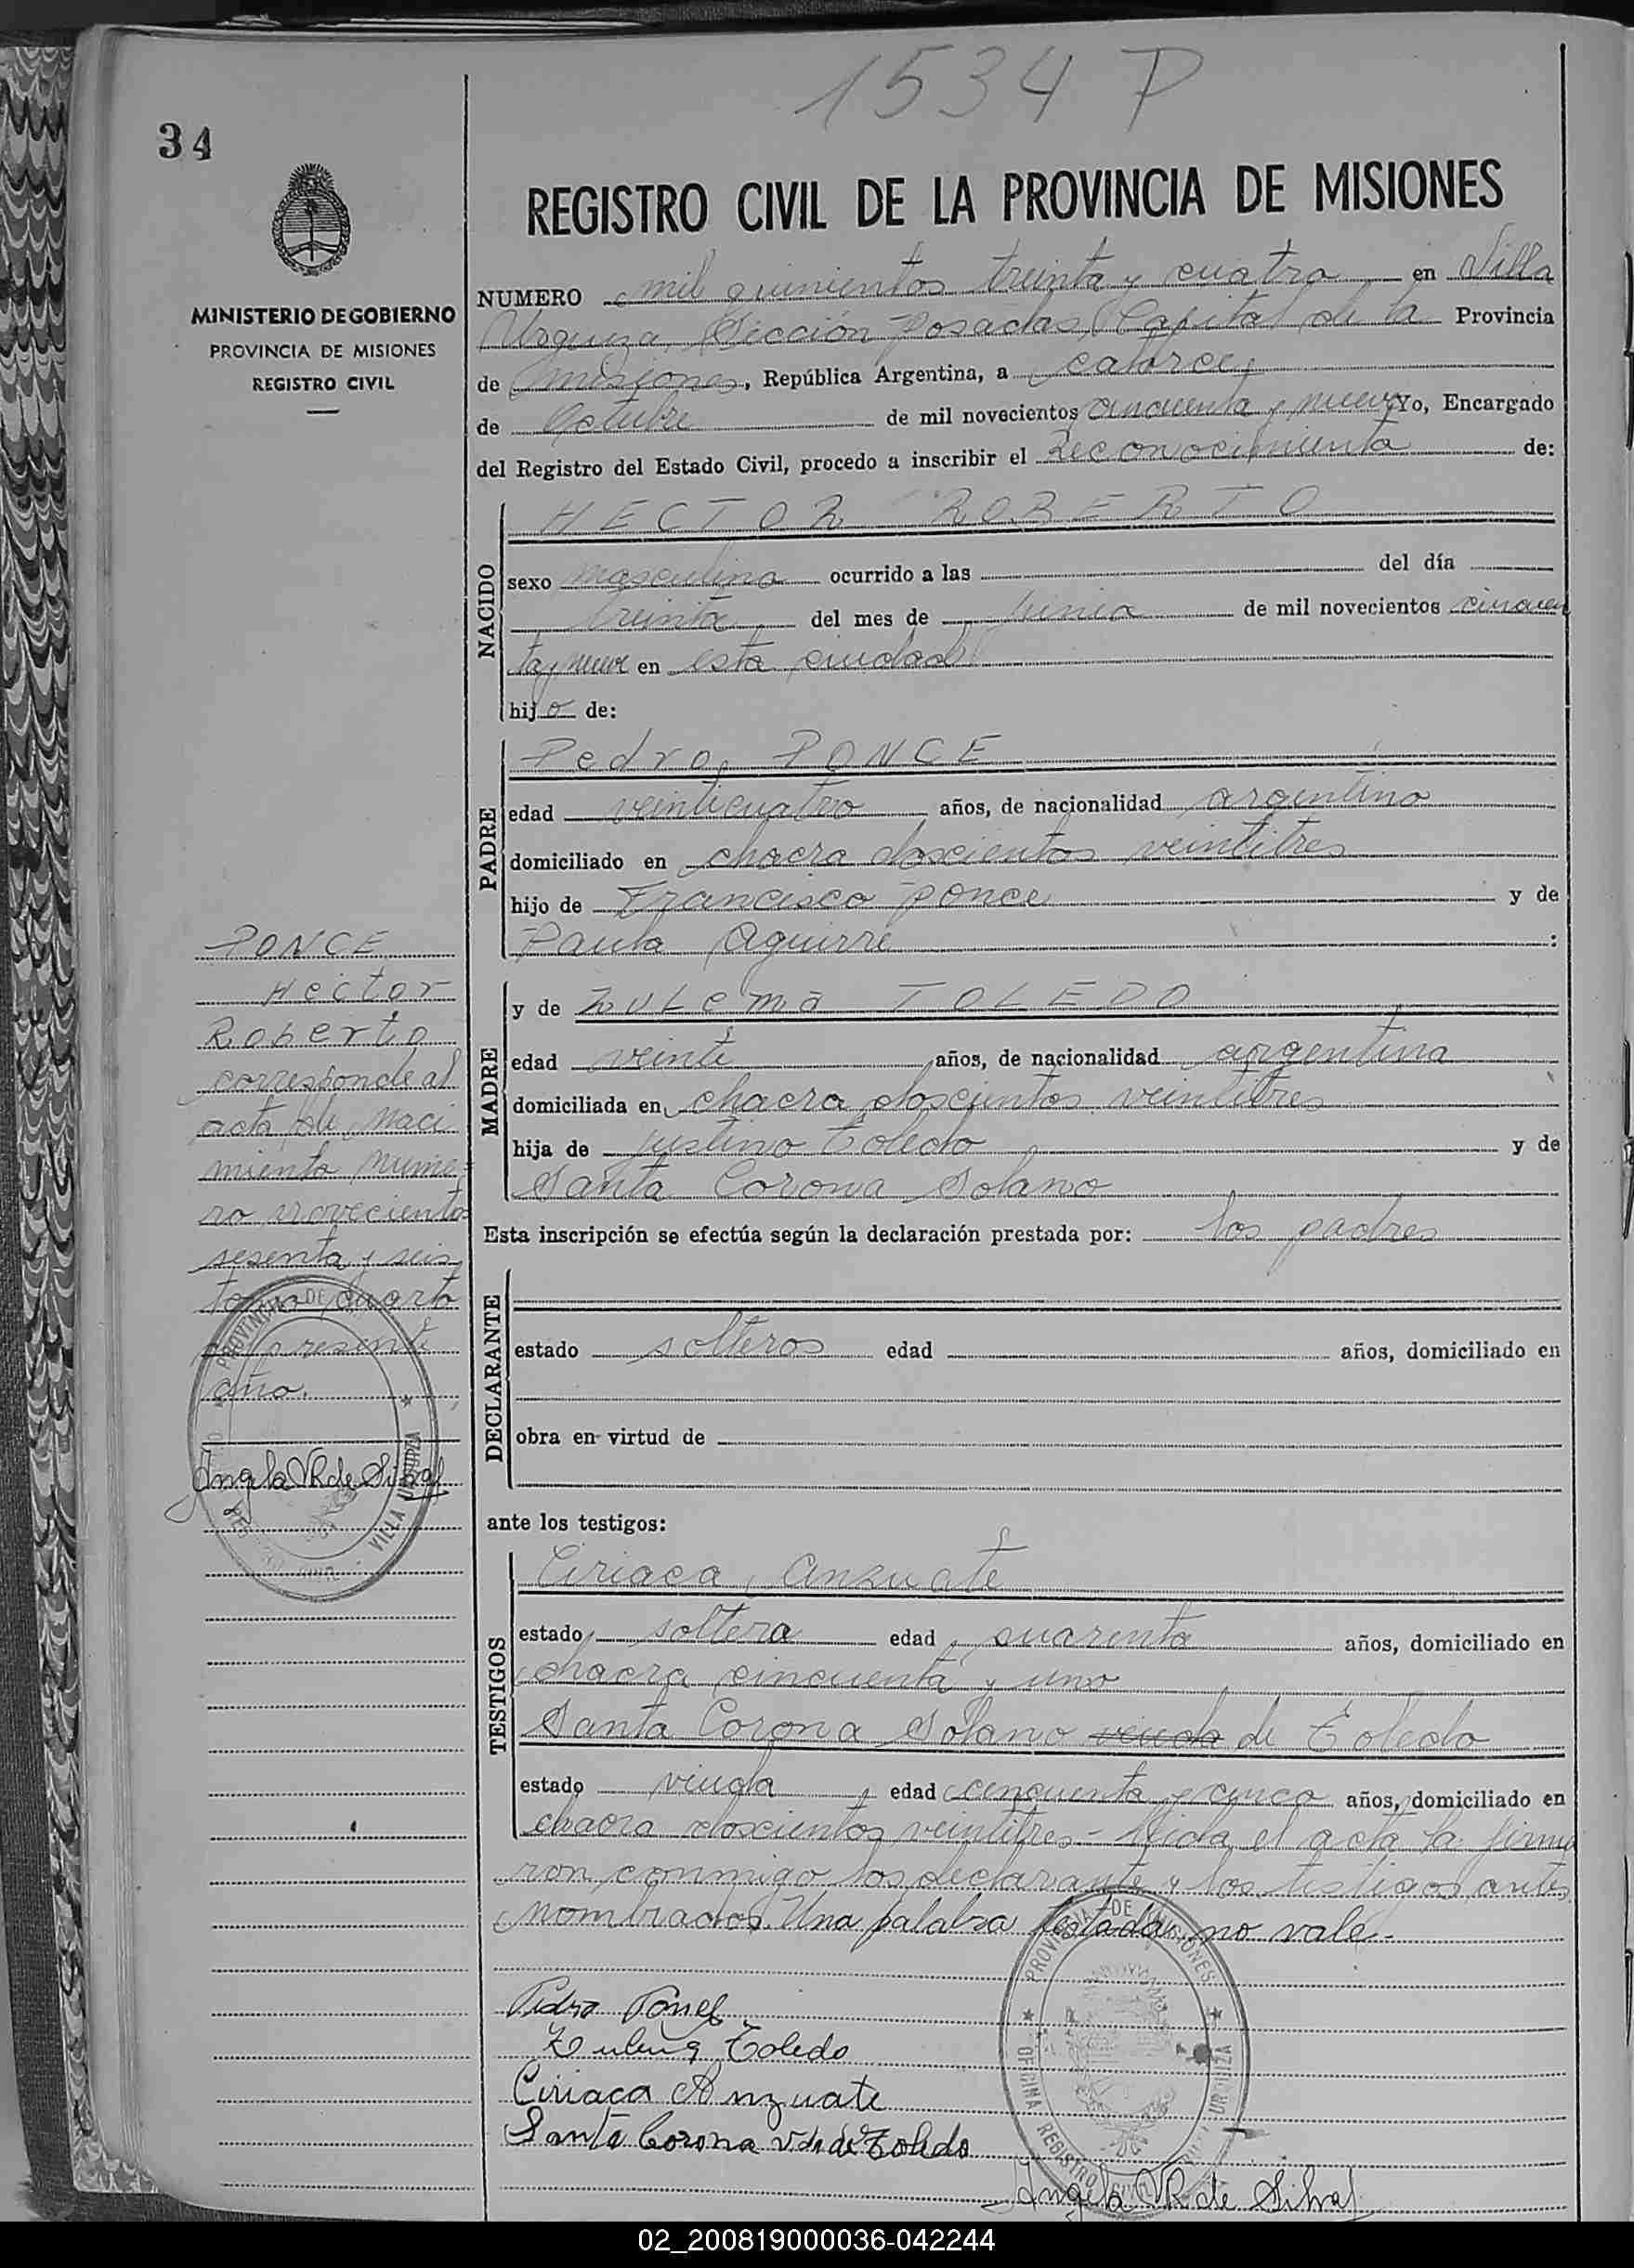 1534 P
34
REGISTRO CIVIL DE LA PROVINCIA DE MISIONES
MINISTERIO DE GOBIERNO
PROVINCIA DE MISIONES
REGISTRO CIVIL
NUMERO mil quinientos treinta y cuatro en Villa
Urquiza, Sección Posadas, Capital de la Provincia
de Misiones, República Argentina, a catorce
de Octubre de mil novecientos cincuenta y nueve Yo, Encargado
del Registro del Estado Civil, procedo a inscribir el Reconocimiento de:
NACIDO
HECTOR ROBERTO
sexo masculino ocurrido a las del día
treinta del mes de junio de mil novecientos cincuen
ta y nueve en esta ciudad
hijo de:
PADRE
Pedro PONCE
edad veinticuatro años, de nacionalidad argentino
domiciliado en chacra doscientos veintitres
hijo de Francisco Ponce y de
Paula Aguirre :
MADRE
y de Zulema TOLEDO
edad veinte años, de nacionalidad argentina
domiciliada en chacra doscientos veintitres
hija de Justino Toledo y de
Santa Corona Solano
Esta inscripción se efectúa según la declaración prestada por: los padres
DECLARANTE
estado solteros edad años, domiciliado en
obra en virtud de
ante los testigos:
TESTIGOS
Ciriaca Anzuate
estado soltera edad cuarenta años, domiciliado en
chacra cincuenta y uno
Santa Corona Solano viuda de Toledo
estado viuda edad cincuenta y cinco años, domiciliado en
chacra doscientos veintitres - leida el acta la firma
ron conmigo los declarante y los testigos antes
nombrados. Una palabra testada, no vale.-
Pedro Ponce
Zulema Toledo
Ciriaca Anzuate
Santa Corona Vda de Toledo
Angela VR de Silva
PROVINCIA DE MISIONES
OFICINA REGISTRO
URQUIZA
PONCE
Hector
Roberto
corresponde al
acta de naci
miento nume-
ro novecientos
sesenta y seis
tomo cuarto
presente
año.
Angela VR de Silva
PROVINCIA DE
VILLA URQUIZA
02_200819000036-042244